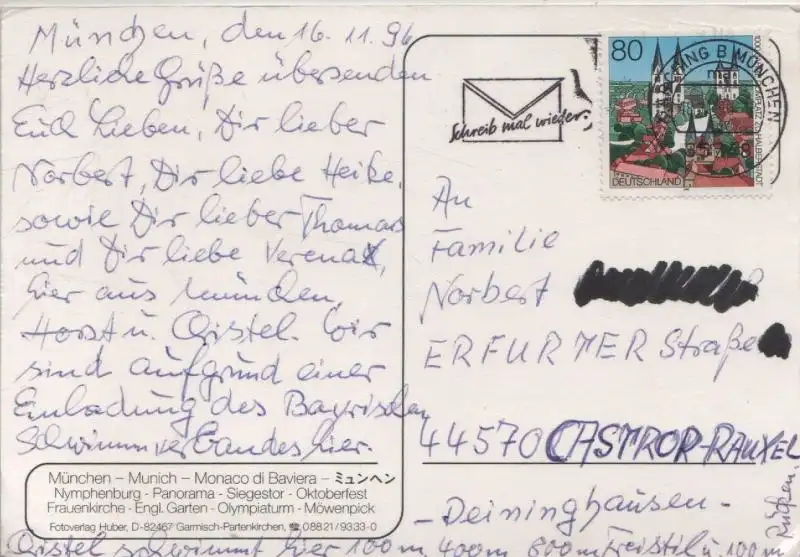 München, den 16.11.96
Herzliche Grüße übersenden
Euch Lieben, Dir lieber
Norbert, Dir liebe Heike,
sowie Dir lieber Thomas
und Dir liebe Verena,
hier aus München,
Horst u. Christel. Wir
sind aufgrund einer
Einladung des Bayrischen
Schwimmverbandes hier.
München – Munich – Monaco di Baviera – ミュンヘン
Nymphenburg - Panorama - Siegestor - Oktoberfest
Frauenkirche - Engl. Garten - Olympiaturm - Möwenpick
Fotoverlag Huber, D-82467 Garmisch-Partenkirchen, ☎ 08821/9333-0
Christel schwimmt hier 100 m, 400m, 800m Freistil u. 100 m
Rücken.
Schreib mal wieder.
80
DEUTSCHLAND
MÜNCHEN
An
Familie
Norbert
ERFURTER Straße
44570 CASTROP-RAUXEL
- Deininghausen -